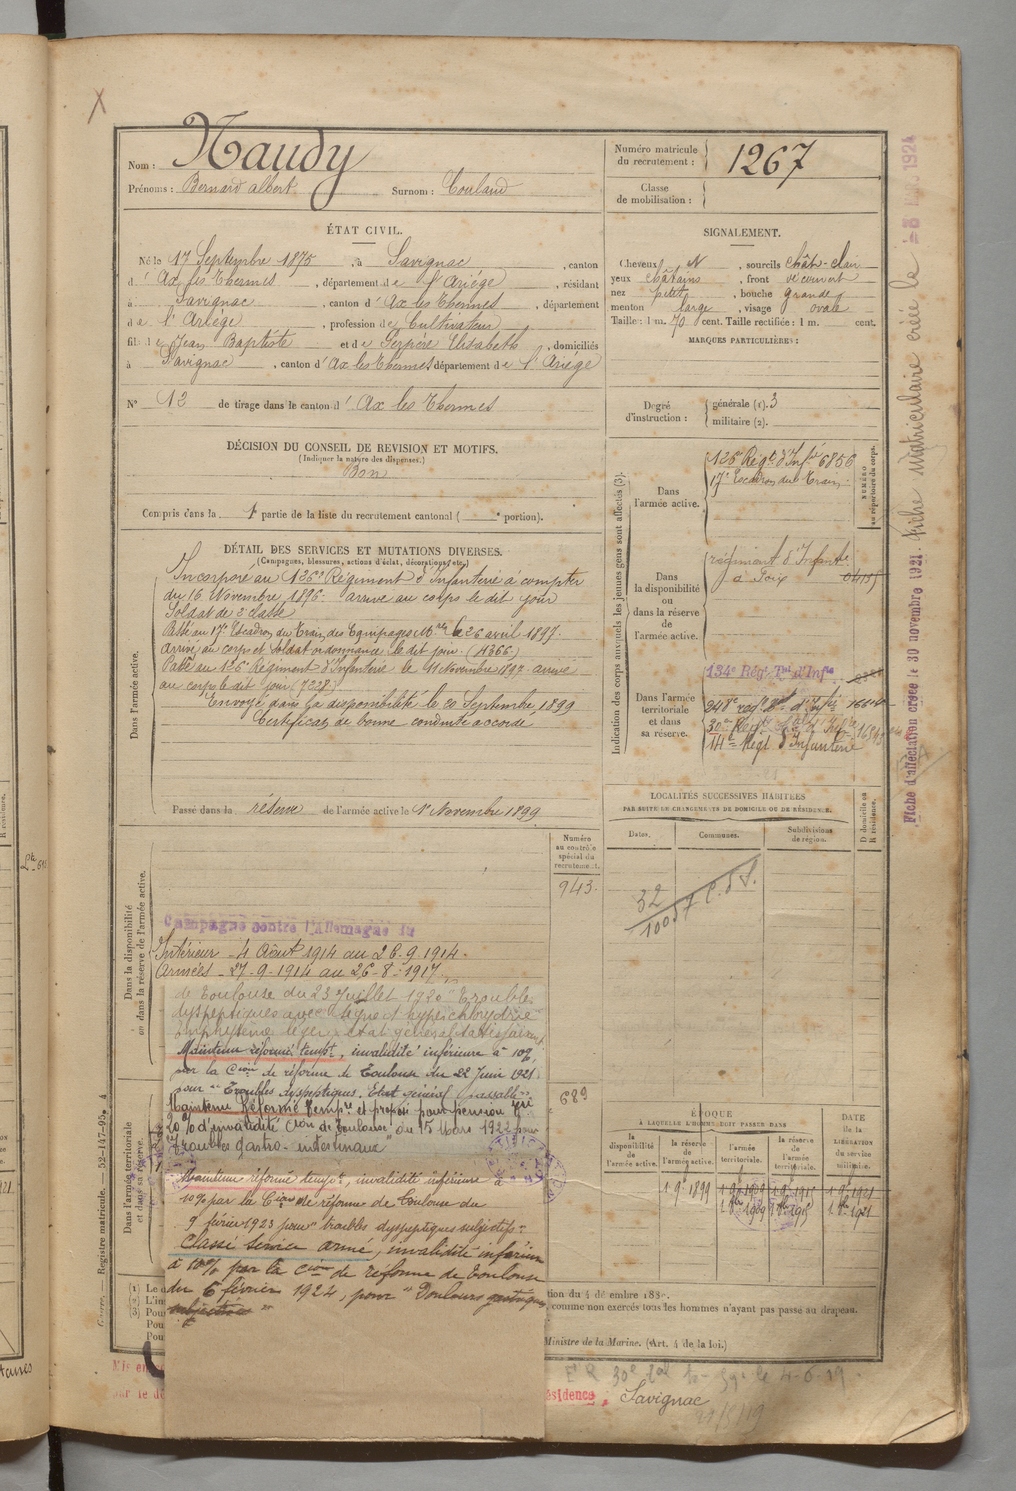 Nom : Naudy
Prénoms : Bernard albert Surnom : Couland
Numéro matricule du recrutement : 1267
Classe de mobilisation :
ÉTAT CIVIL.
Né le 17 Septembre 1875, à Savignac, canton
d' Ax les Thermes, département de l'Ariége, résidant
à Savignac, canton d' Ax les Thermes, département
de l'Ariége, profession de Cultivateur
fils de Jean Baptiste et de Serpère Elisabeth, domiciliés
à Savignac, canton d' Ax les Thermes département de l'Ariége
N° 13 de tirage dans le canton d' Ax les Thermes
DÉCISION DU CONSEIL DE REVISION ET MOTIFS.
(Indiquer la nature des dispenses.)
Bon
Compris dans la 1e partie de la liste du recrutement cantonal ( e portion).
SIGNALEMENT.
Cheveux N, sourcils chât-clair
yeux châtains, front découvert
nez petit, bouche grande
menton large, visage ovale
Taille : 1 m. 70 cent. Taille rectifiée : 1 m. cent.
MARQUES PARTICULIÈRES :
Degré d'instruction : générale (1). 3
militaire (2).
DÉTAIL DES SERVICES ET MUTATIONS DIVERSES.
(Campagnes, blessures, actions d'éclat, décorations, etc.)
Dans l'armée active.
Incorporé au 126e Régiment d'Infanterie à compter
du 16 Novembre 1896. arrivé au corps le dit jour
Soldat de 2e classe
Passé au 17e Escadron du Train des Equipages Mres le 26 avril 1897.
Arrivé au corps et Soldat ordonnance le dit jour. (4366)
Passé au 126e Régiment d'Infanterie le 11 Novembre 1897 arrivé
au corps le dit jour (7228)
Envoyé dans la disponibilité le 20 Septembre 1899
Certificat de bonne conduite accordé
Passé dans la réserve de l'armée active le 1er Novembre 1899
Indication des corps auxquels les jeunes gens sont affectés (3).
NUMÉRO au répertoire du corps.
Dans l'armée active.
126e Régt d'Infie 6856
17e Escadron du Train
Dans la disponibilité ou dans la réserve de l'armée active.
régiment d'Infanterie
à Foix
Dans l'armée territoriale et dans sa réserve.
134e Régt Tal d'Infie
14e Régt d'Infanterie
LOCALITÉS SUCCESSIVES HABITÉES
PAR SUITE DE CHANGEMENTS DE DOMICILE OU DE RÉSIDENCE.
Dates. Communes. Subdivisions de région. D domicile ou R résidence.
Numéro au contrôle spécial du recrutement.
943.
Dans la disponibilité ou dans la réserve de l'armée active.
Campagne contre l'Allemagne du
Intérieur - 4 Août 1914 au 26.9.1914.
Armées - 27-9-1914 au 26-8-1917
de Toulouse du 23 Juillet 1920 "Troubles
dyspeptiques avec
Maintenu réformé tempre, invalidité inférieure à 10%,
par la Cion de réforme de Toulouse du 22 Juin 1921
pour "Troubles dyspeptiques. Etat général passable"
Maintenu Réformé Tempre et proposé pour pension
20% d'invalidité Cion de Toulouse du 15 Mars 1922 pour
"Troubles gastro-intestinaux"
689
Maintenu réformé tempre, invalidité inférieure à
10% par la Cion de réforme de Toulouse du
9 février 1923 pour "troubles dyspeptiques subjectifs"
Classé service armé, invalidité inférieure
à 10% par la Cion de réforme de Toulouse
du 6 février 1924, pour "Douleurs gastriques
subjectives"
Dans l'armée territoriale et dans sa réserve.
ÉPOQUE
À LAQUELLE L'HOMME DOIT PASSER DANS
la disponibilité de l'armée active. la réserve de l'armée active. l'armée territoriale. la réserve de l'armée territoriale.
DATE de la LIBÉRATION du service militaire.
1 9e 1899 1 9e 1909 1 9e 1915 1 9e 1921
1 8bre 1909 1 8bre 1915 1 8bre 1921
tion du 4 décembre 1889.
, comme non exercés tous les hommes n'ayant pas passé au drapeau.
Ministre de la Marine. (Art. 4 de la loi.)
résidence : Savignac
Fiche d'affectation créée le 30 novembre 1921. Fiche matriculaire créée le